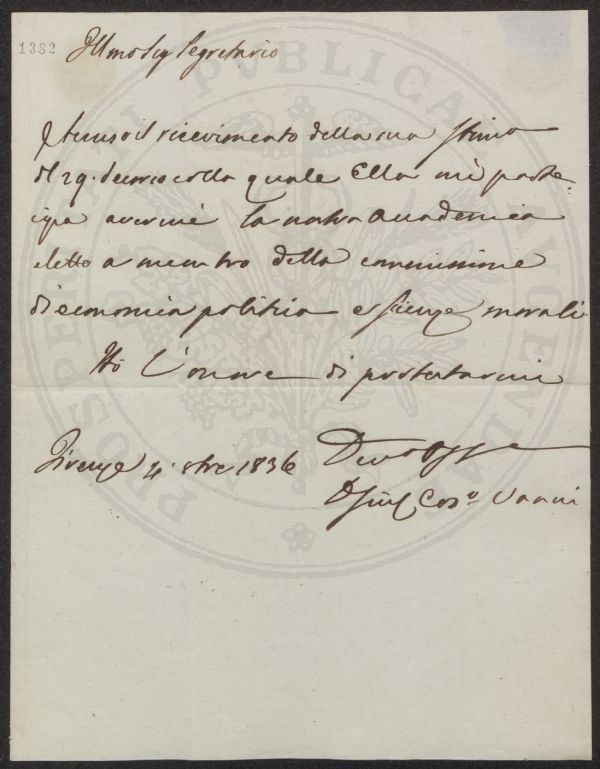 1382
Illmo Sig Segretario
il ricevimento della sua stima
del 29. decorso colla quale Ella mi parte=
cipa avermi la nostra Accademia
eletto a membro della commissione
di economia politica e scienze morali
Ho l'onore di protestarmi
Firenze 4. 8bre 1836
PROSPERITATI PVBLICAE AVGENDAE